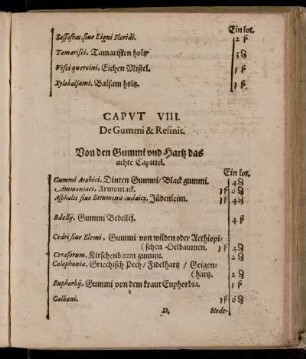 Ein lot.
Sassafras siue Ligni Floridi. 2 ß
Tamarisci. Tamarisken holtz 3 ₰
Visci quercini. Eichen Mistel. 1 ß
Xylobalsami. Balsam holtz. 1 ß
CAPVT VIII.
De Gummi & Resinis.
Von den Gummi vnd Hartz das
achte Capittel.
Ein lot.
Gummi Arabici. Dinten Gummi/ Black gummi. 4 ₰
Ammoniaci. Armoniack. 1 ß 6 ₰
Asphalti siue Bituminis iudaici. Jüdenleim. 1 ß 4 ₰
Bdellij. Gummi Bedellij. 4 ß
Cedri siue Elemi. Gummi von wilden oder Aethiopi-
schen Oelbaumen. 1 ß 4 ₰
Cerasorum. Kirschenbaum gummi. 2 ₰
Colophoniæ. Griechisch Pech/ Fidelhartz / Geigen-
hartz. 2 ₰
Euphorbij. Gummi von dem kraut Euphorbia. 1 ß
Galbani. 1 ß 6 ₰
D. Hede-